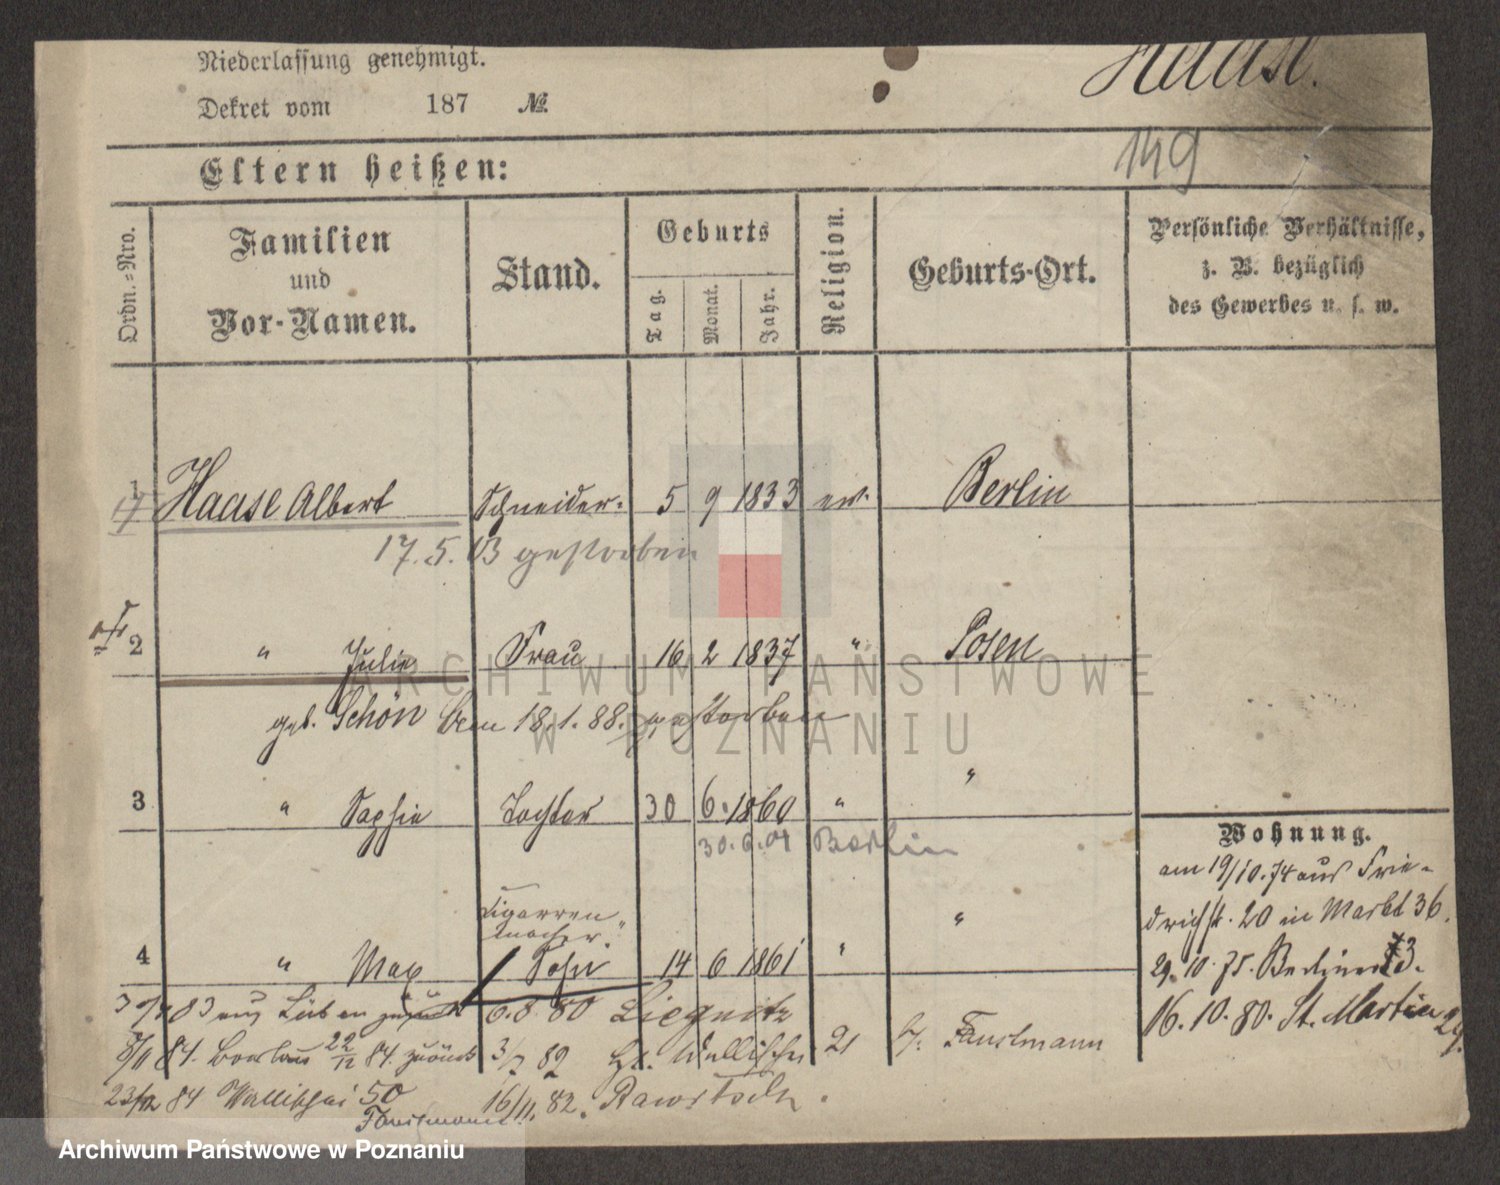 Niederlassung genehmigt.
Dekret vom 187 №
Haase.
149
Eltern heißen:
Ordn.-Nro.
Familien und Vor-Namen.
Stand.
Geburts
Tag.
Monat.
Jahr.
Religion.
Geburts-Ort.
Persönliche Verhältnisse,
z. B. bezüglich
des Gewerbes u. s. w.
1 Haase Albert Schneider. 5 9 1833 ev. Berlin
17. 5. 03 gestorben
2 " Julie Frau 16 2 1837 " Posen
geb. Schön den 18.1.88. gestorben
3 " Sophie Tochter 30 6. 1860 " "
30. 6. 01 Berlin
Cigarren
macher.
4 " Max Sohn 14 6 1861 " "
Wohnung.
am 19/10.74 aus Frie-
drichst. 20 in Markt 36.
29.10.75. Berliner 13.
16.10.80. St. Martin 29.
83 aus Lüben 6.8 80 Liegnitz
84. Breslau 22/12 84. zurück 3/7 82 Gr. Wallischei 21 b/. Faustmann
23/12 84 Wallischei 50 16/11. 82. Rawitsch.
Faustmann
ARCHIWUM PAŃSTWOWE
W POZNANIU
Archiwum Państwowe w Poznaniu